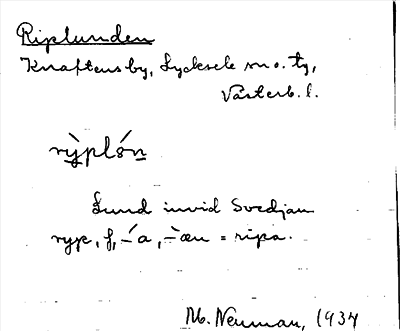 Riplunden
Knaftens by, Lycksele sn o. tg,
Västerb. l.
rỳplón
Lund invid Svedjan
ryp, f, -́a, -̀æn = ripa.
M. Neuman, 1937